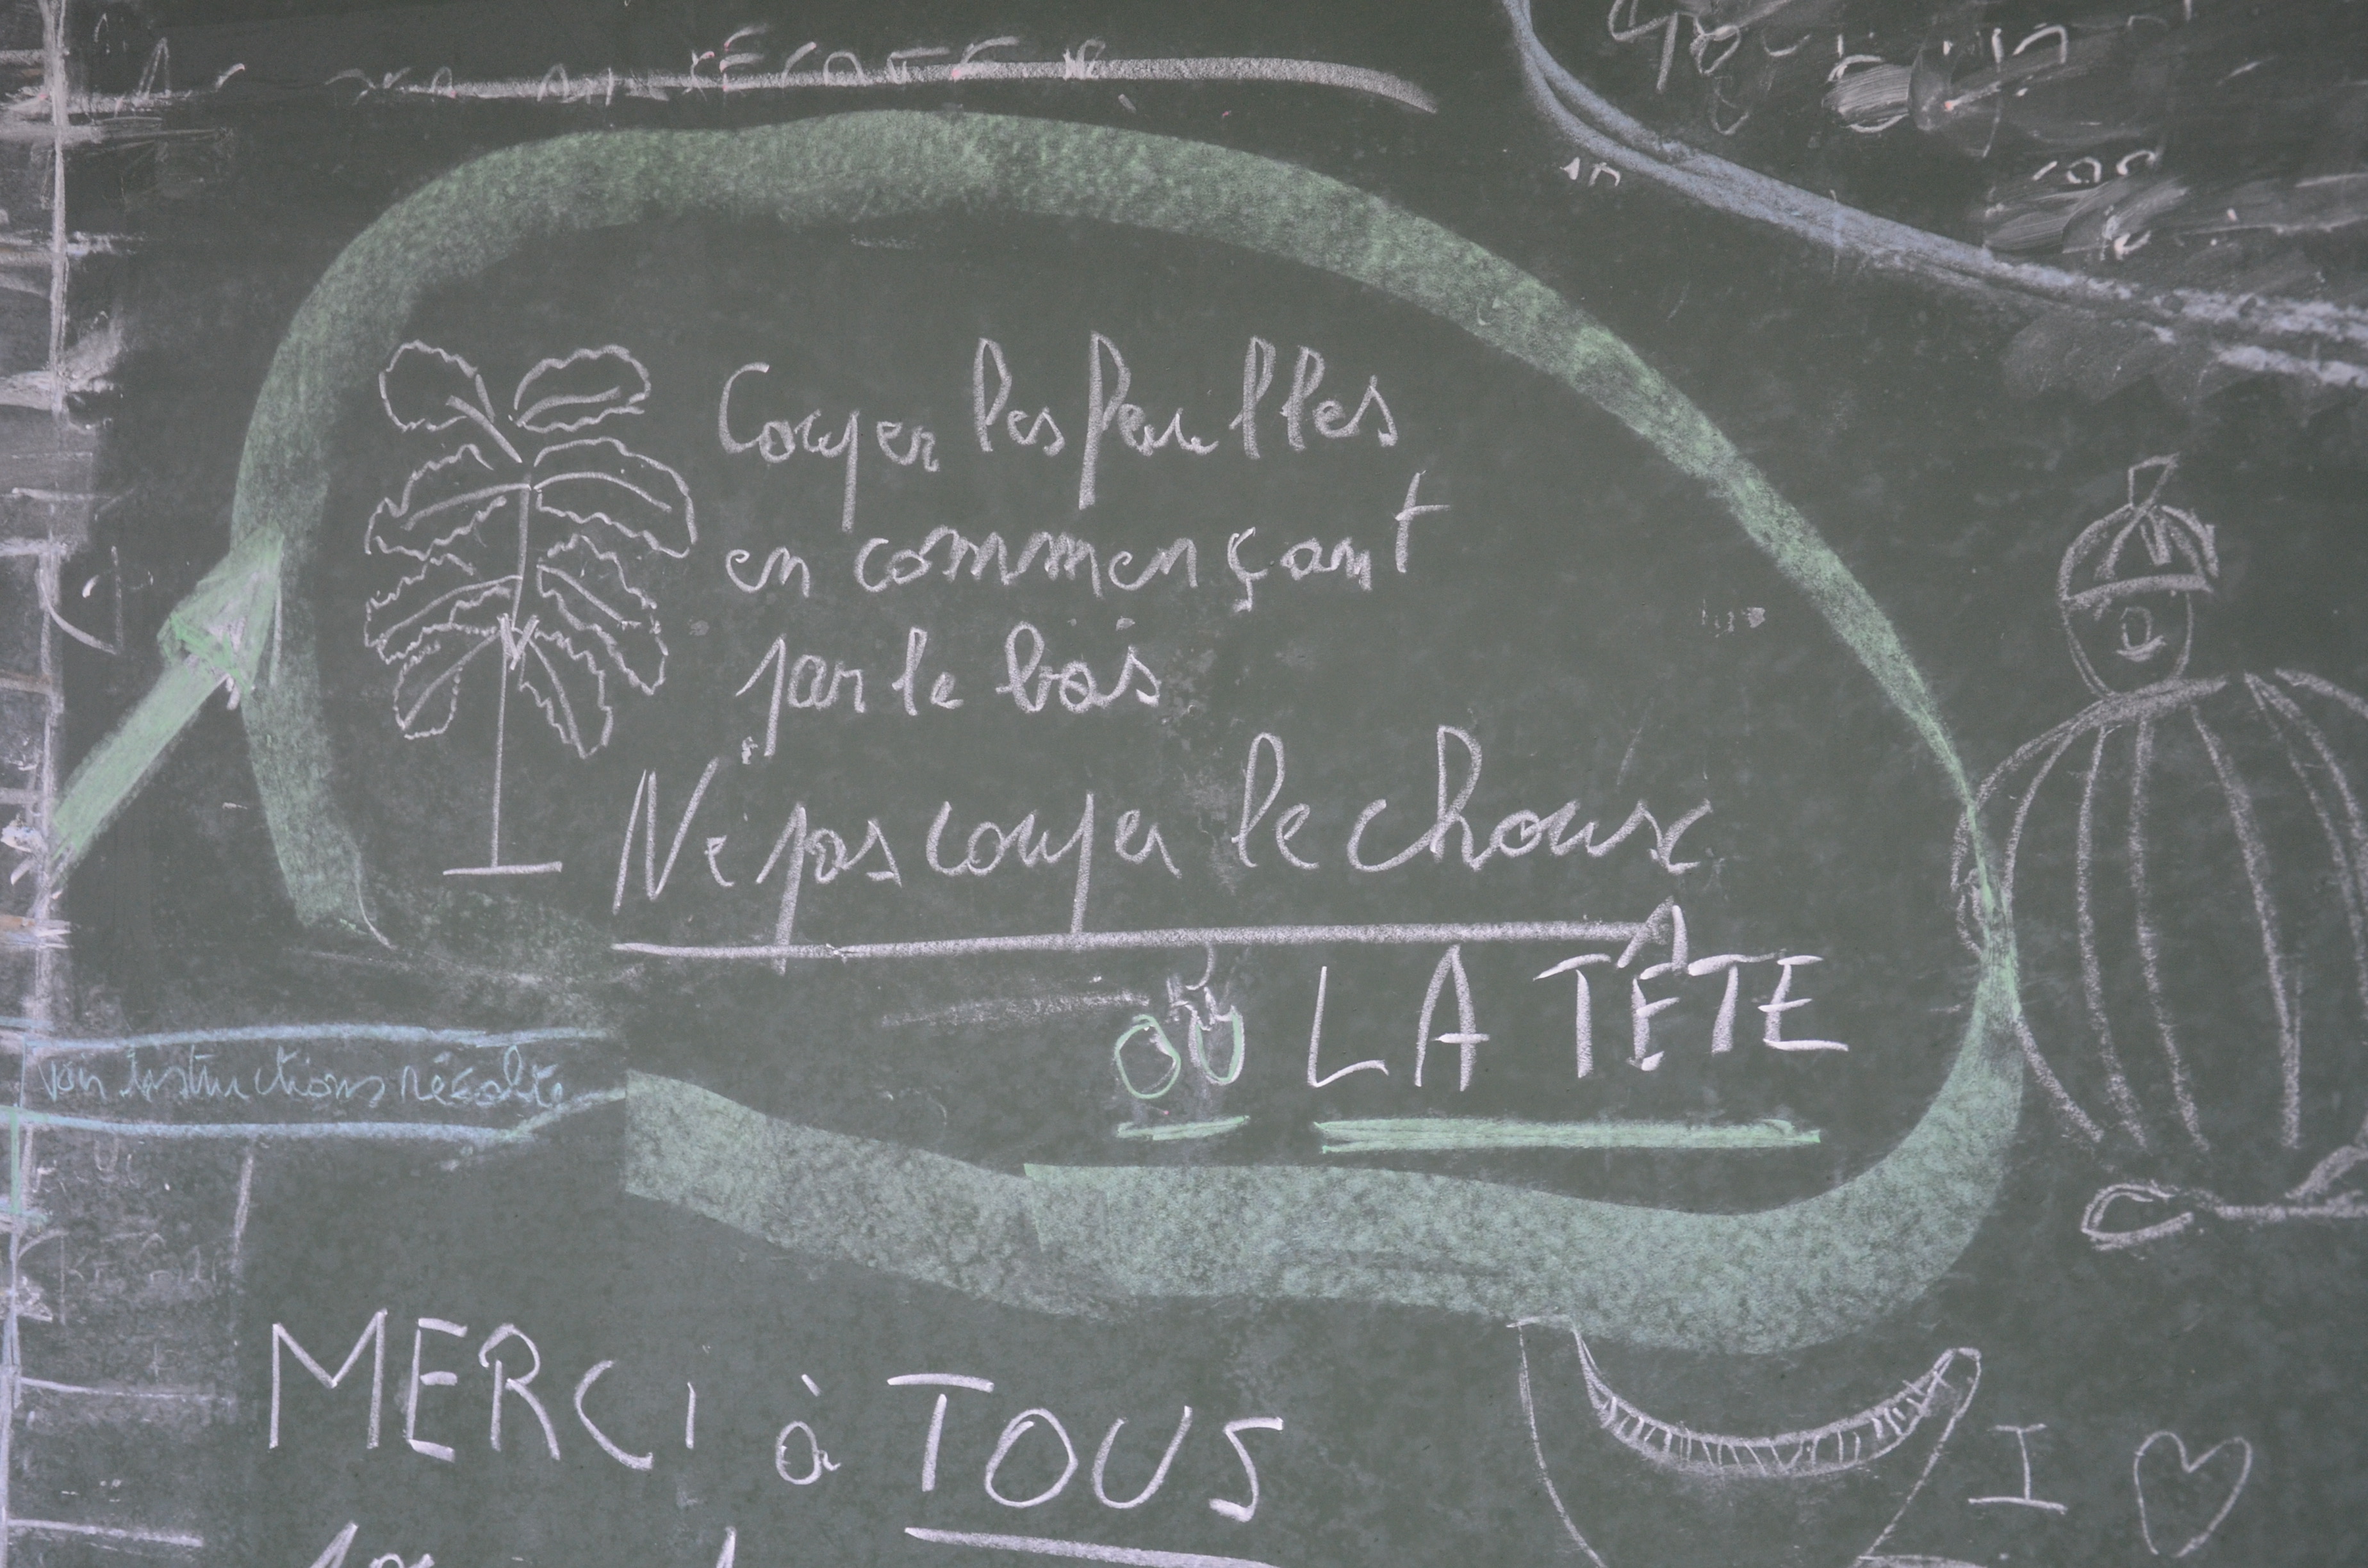 Couper les feuilles
en commençant
par le bas
Ne pas couper le choux
OU LA TÊTE
voir instructions récolte
MERCI à TOUS
I